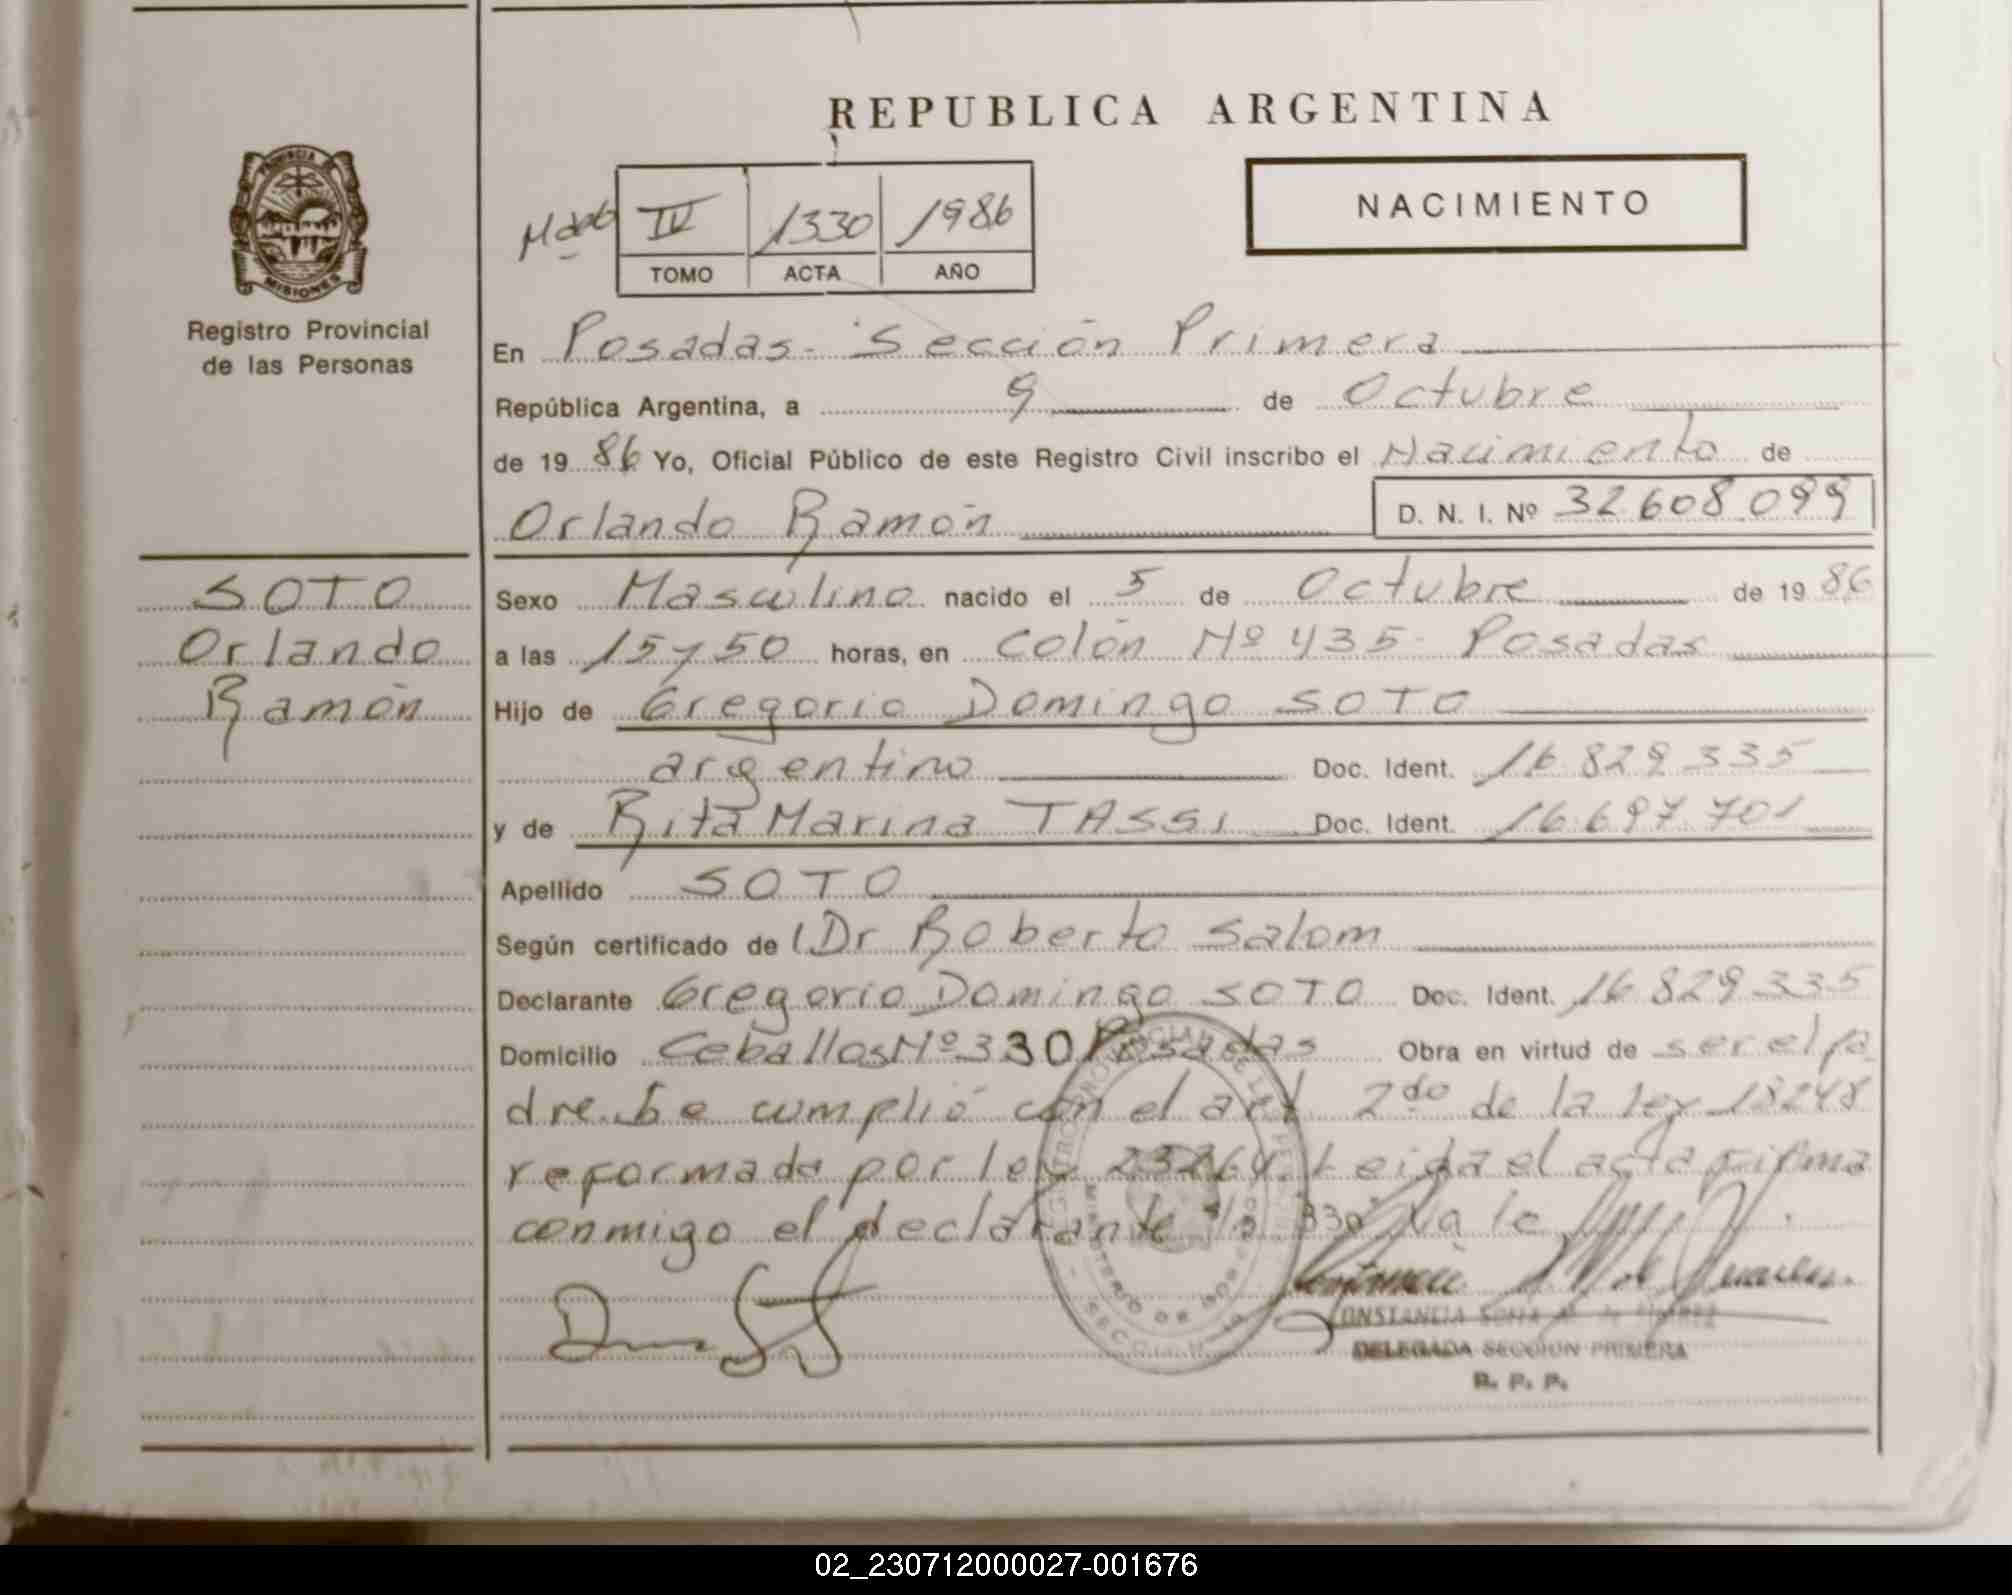 REPUBLICA ARGENTINA
NACIMIENTO
IV 1330 1986
TOMO ACTA AÑO
PROVINCIA
MISIONES
Registro Provincial
de las Personas
En Posadas - Sección Primera
República Argentina, a 9 de Octubre
de 19 86 Yo, Oficial Público de este Registro Civil inscribo el Nacimiento de
Orlando Ramón D. N. I. Nº 32.608.099
SOTO
Orlando
Ramón
Sexo Masculino nacido el 5 de Octubre de 19 86
a las 15 y 50 horas, en Colón Nº 435 - Posadas
Hijo de Gregorio Domingo SOTO
argentino Doc. Ident. 16.829.335
y de Rita Marina TASSI Doc. Ident. 16.697.701
Apellido SOTO
Según certificado de Dr Roberto Salom
Declarante Gregorio Domingo SOTO Doc. Ident. 16.829.335
Domicilio Ceballos Nº 330 Posadas Obra en virtud de ser el pa
dre. Se cumplió con el art 2do de la ley 18248
reformada por ley 23264 Leida el acta firma
conmigo el declarante 330 Vale
CONSTANCIA SONIA
DELEGADA SECCION PRIMERA
R. P. P.
02_230712000027-001676